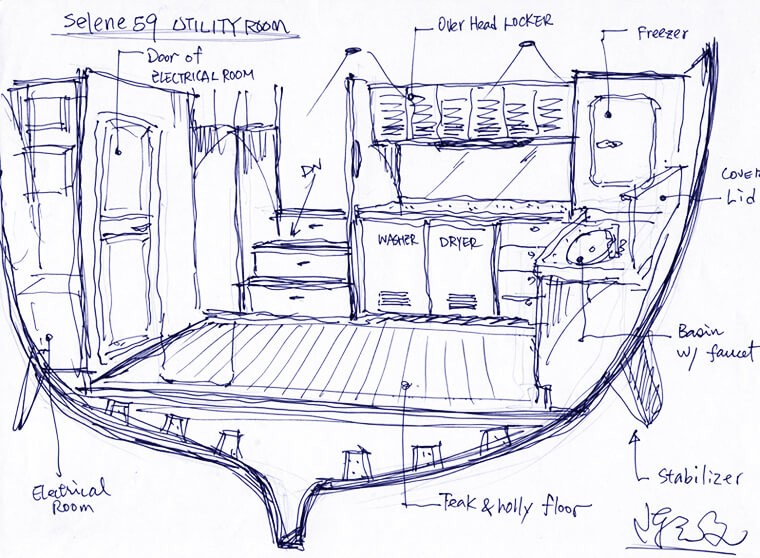 Selene 59 UTILITY ROOM
Door of
ELECTRICAL ROOM
Over Head LOCKER
Freezer
DN
COVER
Lid
WASHER
DRYER
Basin
w/ faucet
Electrical
Room
Teak & holly floor
Stabilizer